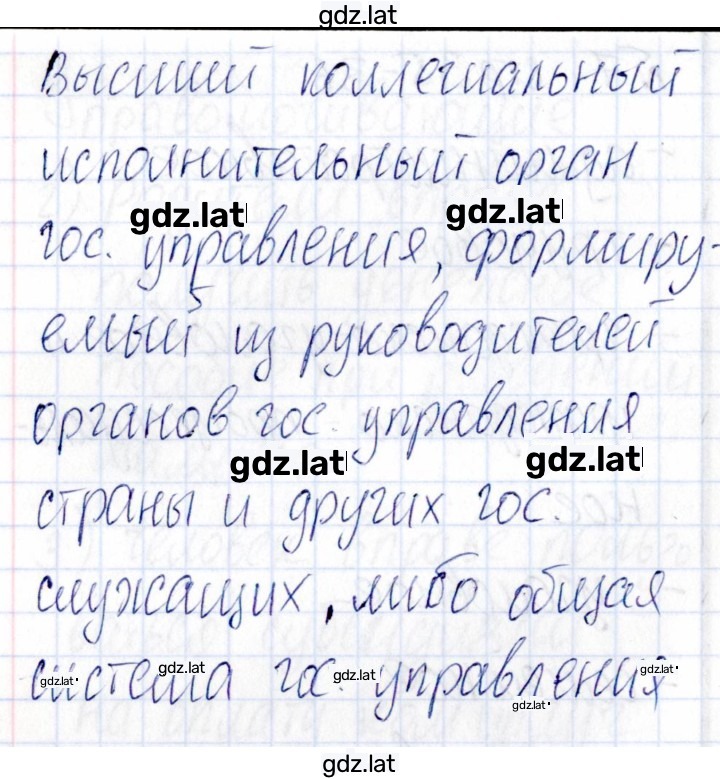 gdz.lat
Высший коллегиальный
исполнительный орган
gdz.lat gdz.lat
гос. управления, формиру-
емый из руководителей
органов гос. управления
gdz.lat gdz.lat
страны и других гос.
служащих, либо общая
система гос. управления
gdz.lat gdz.lat gdz.lat gdz.lat
gdz.lat
gdz.lat